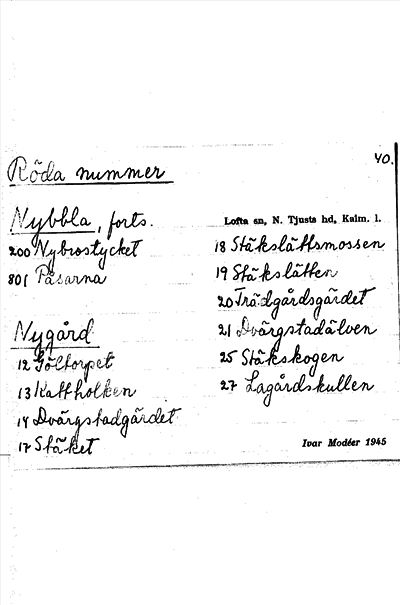 40.
Röda nummer
Nybbla, forts.
200 Nybrostycket
801 Påsarna
Nygård
12 Göltorpet
13 Kattholken
14 Dvärgstadgärdet
17 Stäket
Lofta sn, N. Tjusts hd, Kalm. l.
18 Stäkslättsmossen
19 Stäkslätten
20 Trädgårdsgärdet
21 Dvärgstadälven
25 Stäkskogen
27 Lagårdskullen
Ivar Modéer 1945